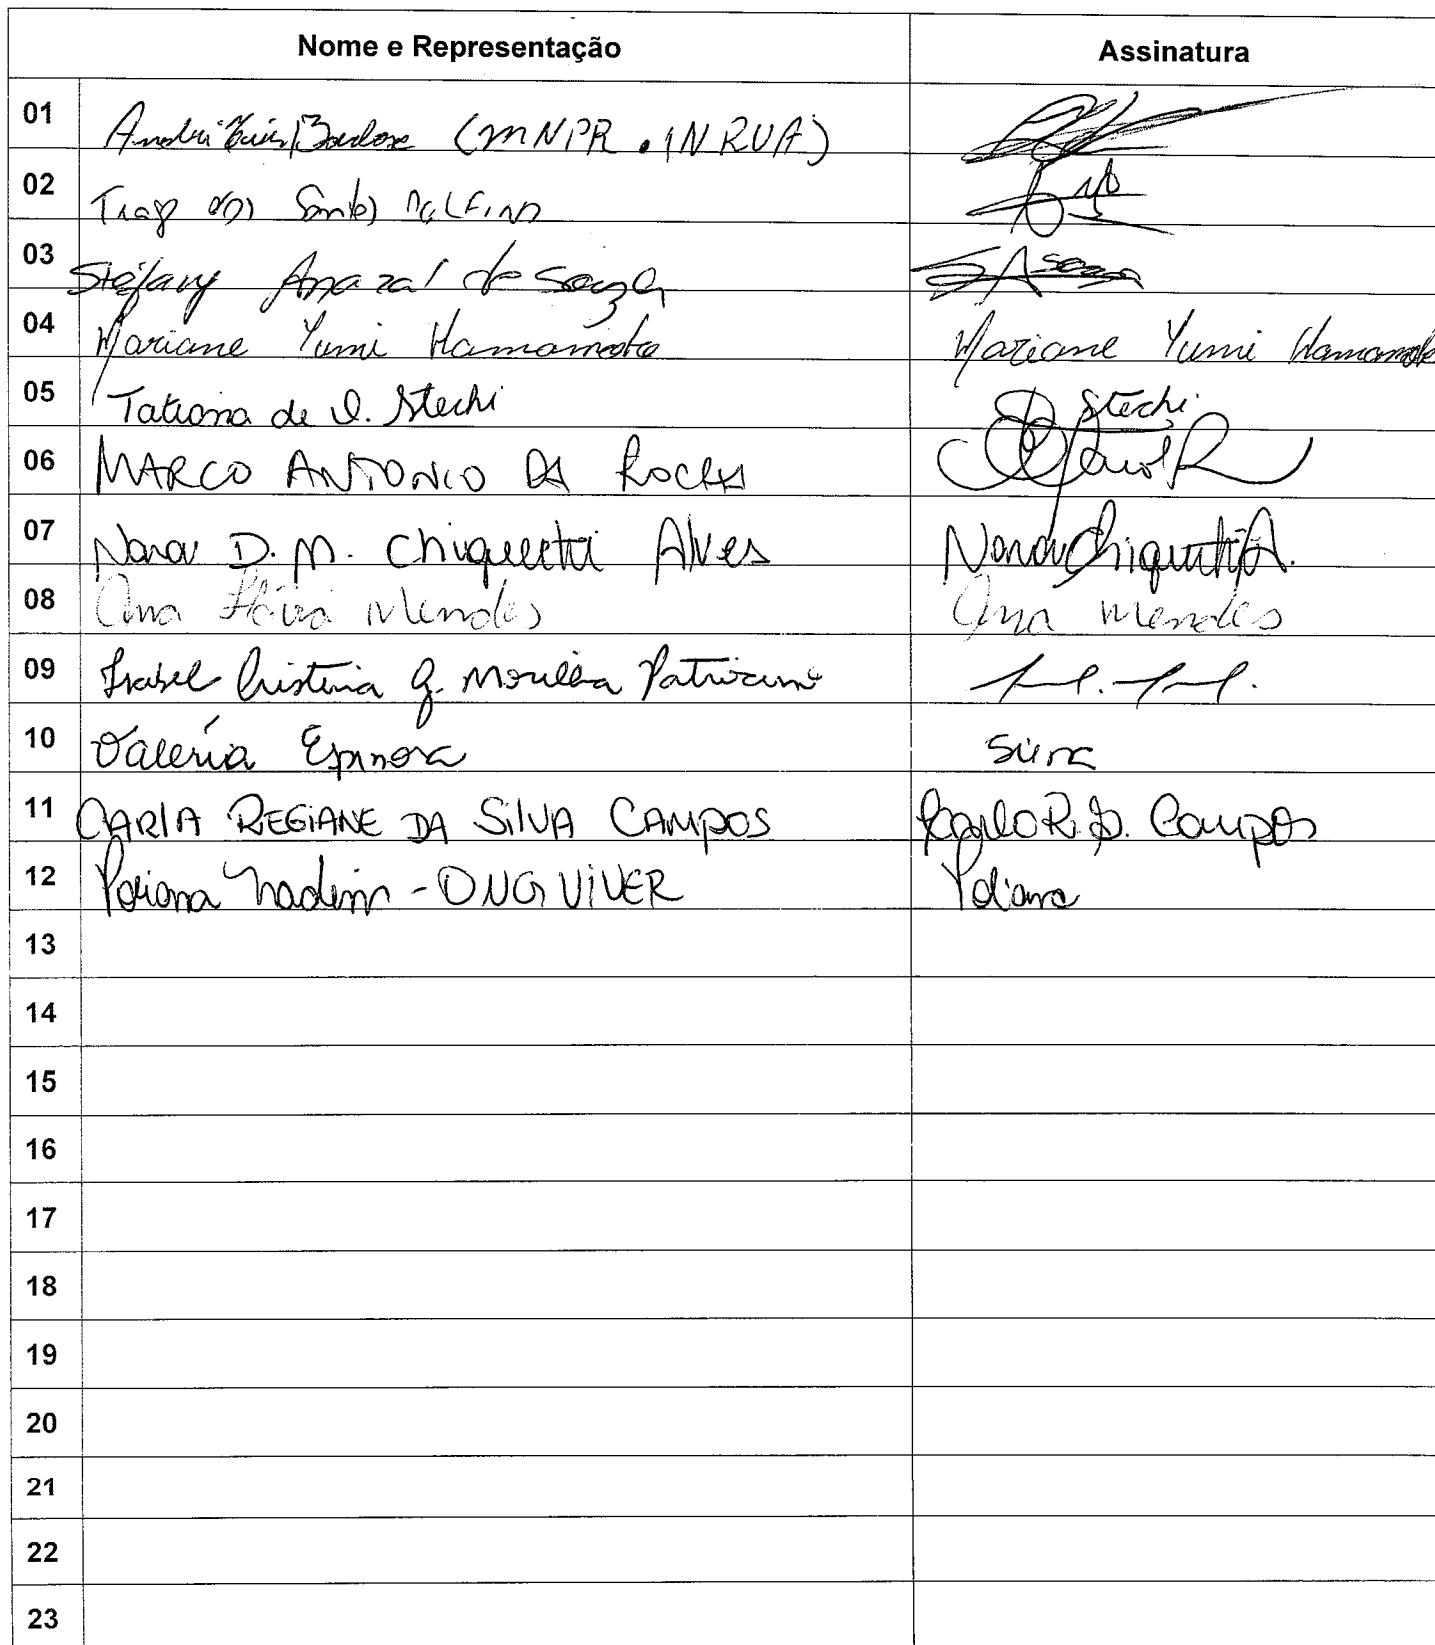 Nome e Representação Assinatura
01 André Luis Barbosa (MNPR . INRUA)
02 dos Santos
03 Stéfany Amaral de Souza Souza
04 Mariane Yumi Hamamoto Mariane Yumi Hamamoto
05 Tatiana de O. Stechi Stechi
06 MARCO ANTONIO DA ROCHA
07 Nara D. M. Chiquetti Alves Nara Chiquetti A.
08 Ana Flávia Mendes Ana Mendes
09 Isabel Cristina G. Morilha Patrocinio
10 Valéria Espinosa
11 CARLA REGIANE DA SILVA CAMPOS Carla R. S. Campos
12 Poliana Nadim - ONG VIVER Poliana
13
14
15
16
17
18
19
20
21
22
23